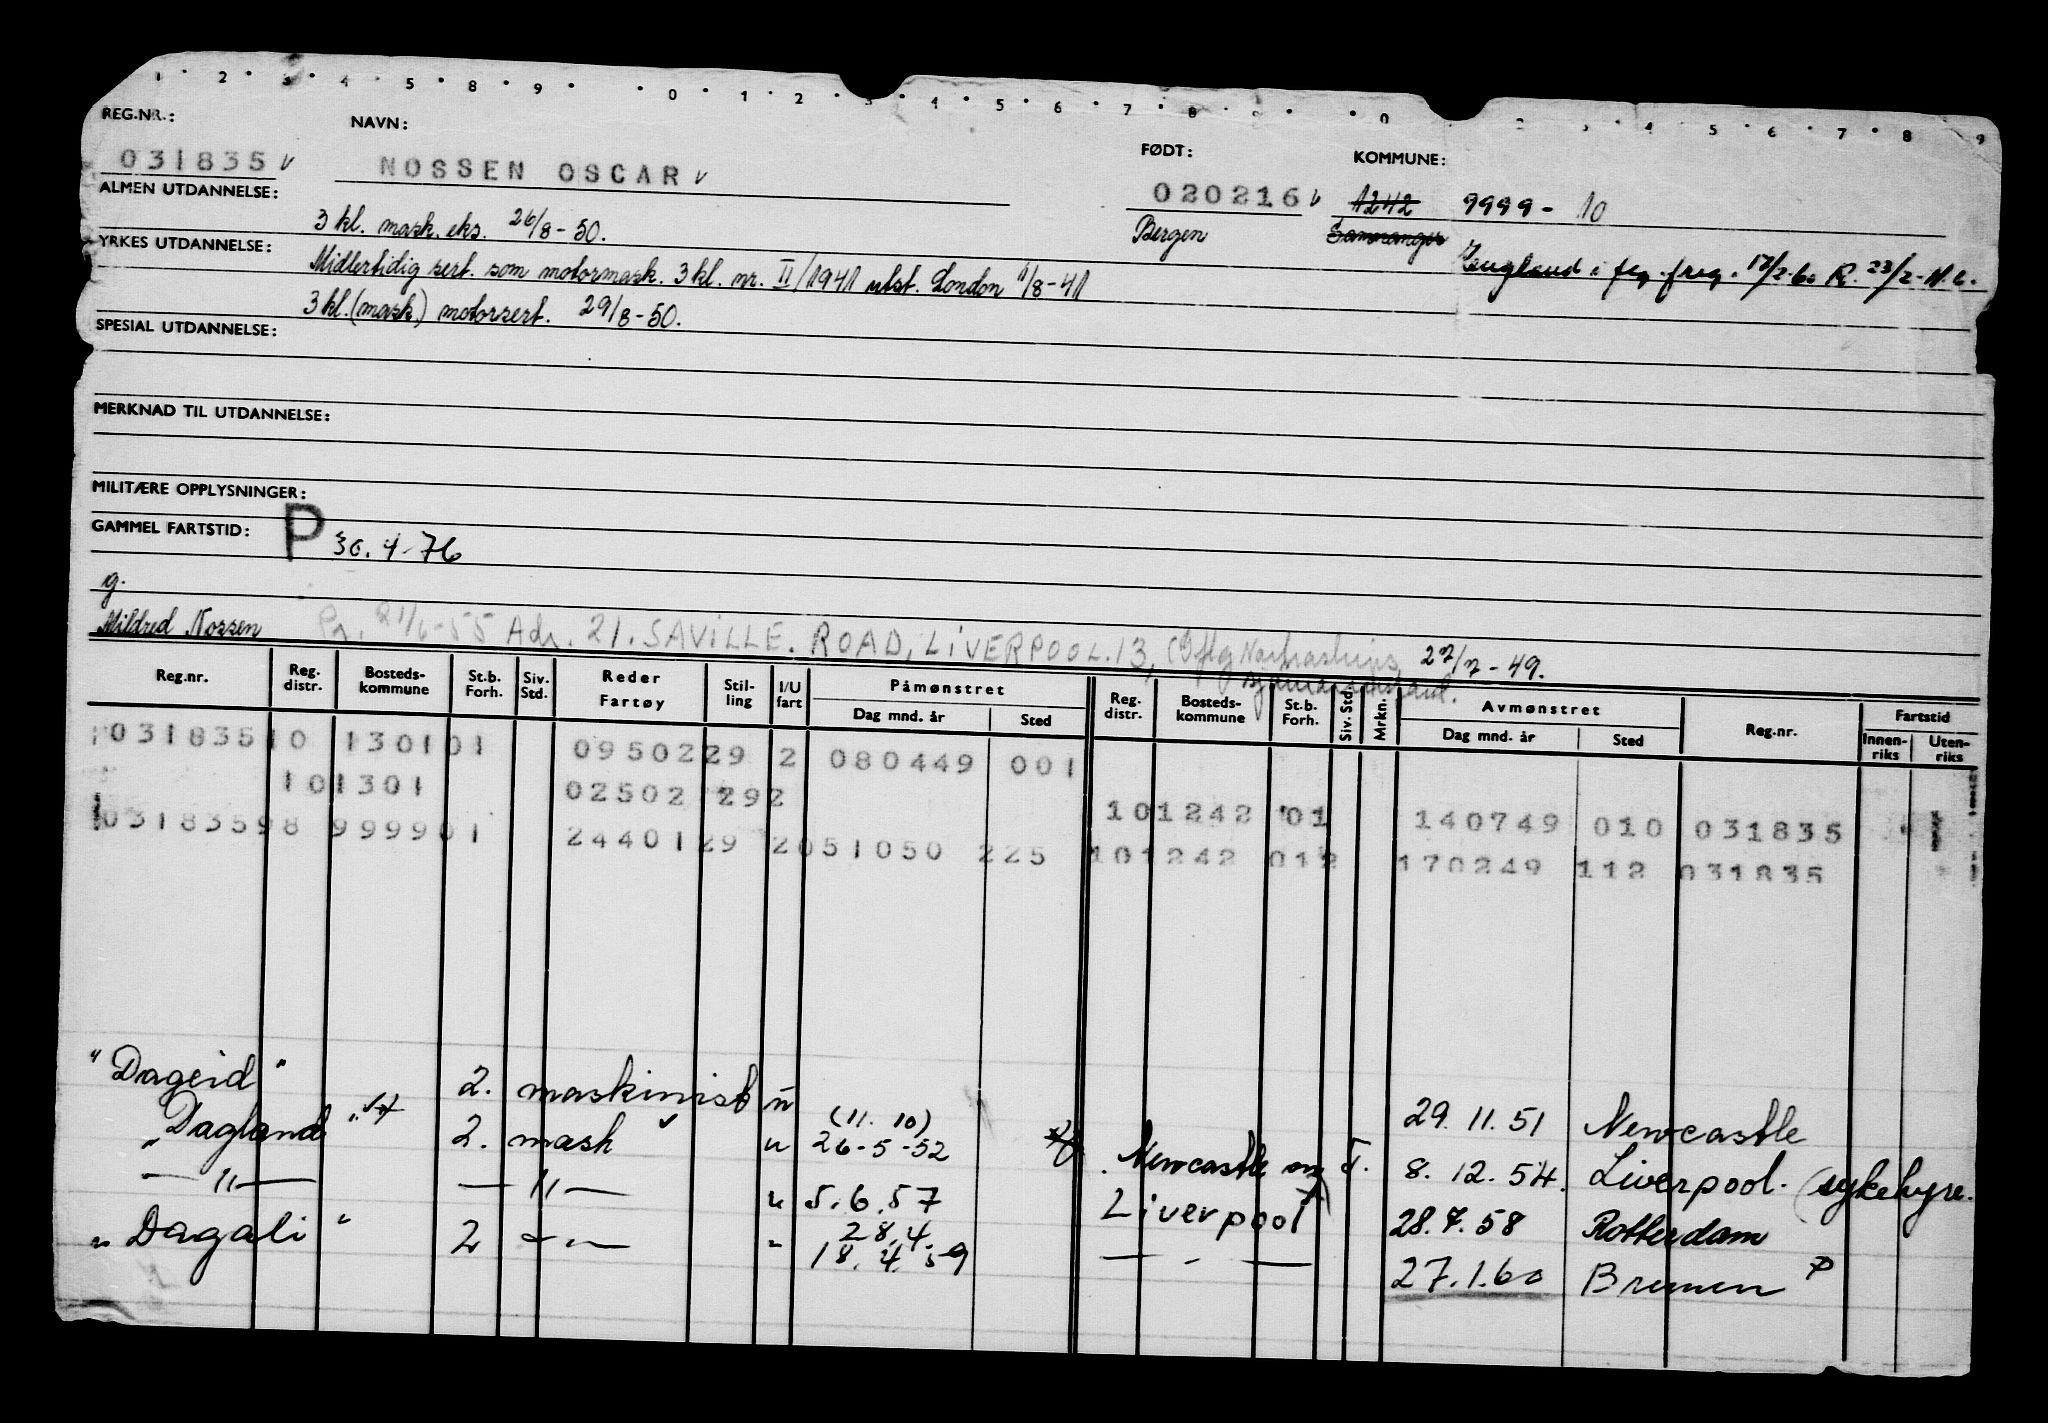 1 2 3 4 5 8 9 0 1 2 3 4 5 6 7 8 9 0 2 3 4 5 6 7 8 9
REG.NR.: NAVN: FØDT: KOMMUNE:
031835 v NOSSEN OSCAR v 020216 v 1242 9999 - 10
ALMEN UTDANNELSE: 3 kl. mask. eks. 26/8-50. Bergen Samnanger
YRKES UTDANNELSE: Midlertidig sert. som motormask. 3 kl. nr. II/1941 utst. London 1/8-41 England i flg. freg. 17/2-60 R. 23/2-
3 kl. (mask.) motorsert. 29/8-50.
SPESIAL UTDANNELSE:
MERKNAD TIL UTDANNELSE:
MILITÆRE OPPLYSNINGER:
GAMMEL FARTSTID: P 30.4-76
g.
Mildred Nossen Pr. 21/6-55 Adr. 21. SAVILLE. ROAD, LIVERPOOL.13, 27/7-49.
Reg.nr. Reg. distr. Bosteds-kommune St.b. Forh. Siv. Std. Reder Fartøy Stil-ling I/U fart Påmønstret Dag mnd. år Sted Reg. distr. Bosteds-kommune St.b. Forh. Siv. Std. Mrkn. Avmønstret Dag mnd. år Sted Reg.nr. Fartstid Innen-riks Uten-riks
031835 10 1301 01 0950229 2 080449 001
101301 02502 292 101242 01 140749 010 031835
031835 98 9999 01 2440129 2 051050 225 101242 012 170249 112 031835
"Dageid" 2. maskinist u (11. 10) 29.11.51 Newcastle
"Dagland" 2. mask v u 26-5-52 Newcastle on T. 8.12.54. Liverpool. (sykehyre.
— " — — " — u 5.6.57 Liverpool 28.7.58 Rotterdam
28.4.
" Dagali " 2 — " — " 18.4.59 — " — 27.1.60 Bremen P